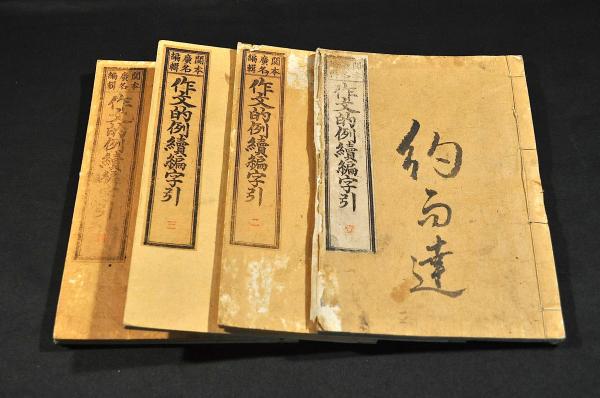 約而達
作文的例續編字引
関本
廣名
編輯
作文的例續編字引
二
関本
廣名
編輯
作文的例續編字引
三
関本
廣名
編輯
作文的例續編字引